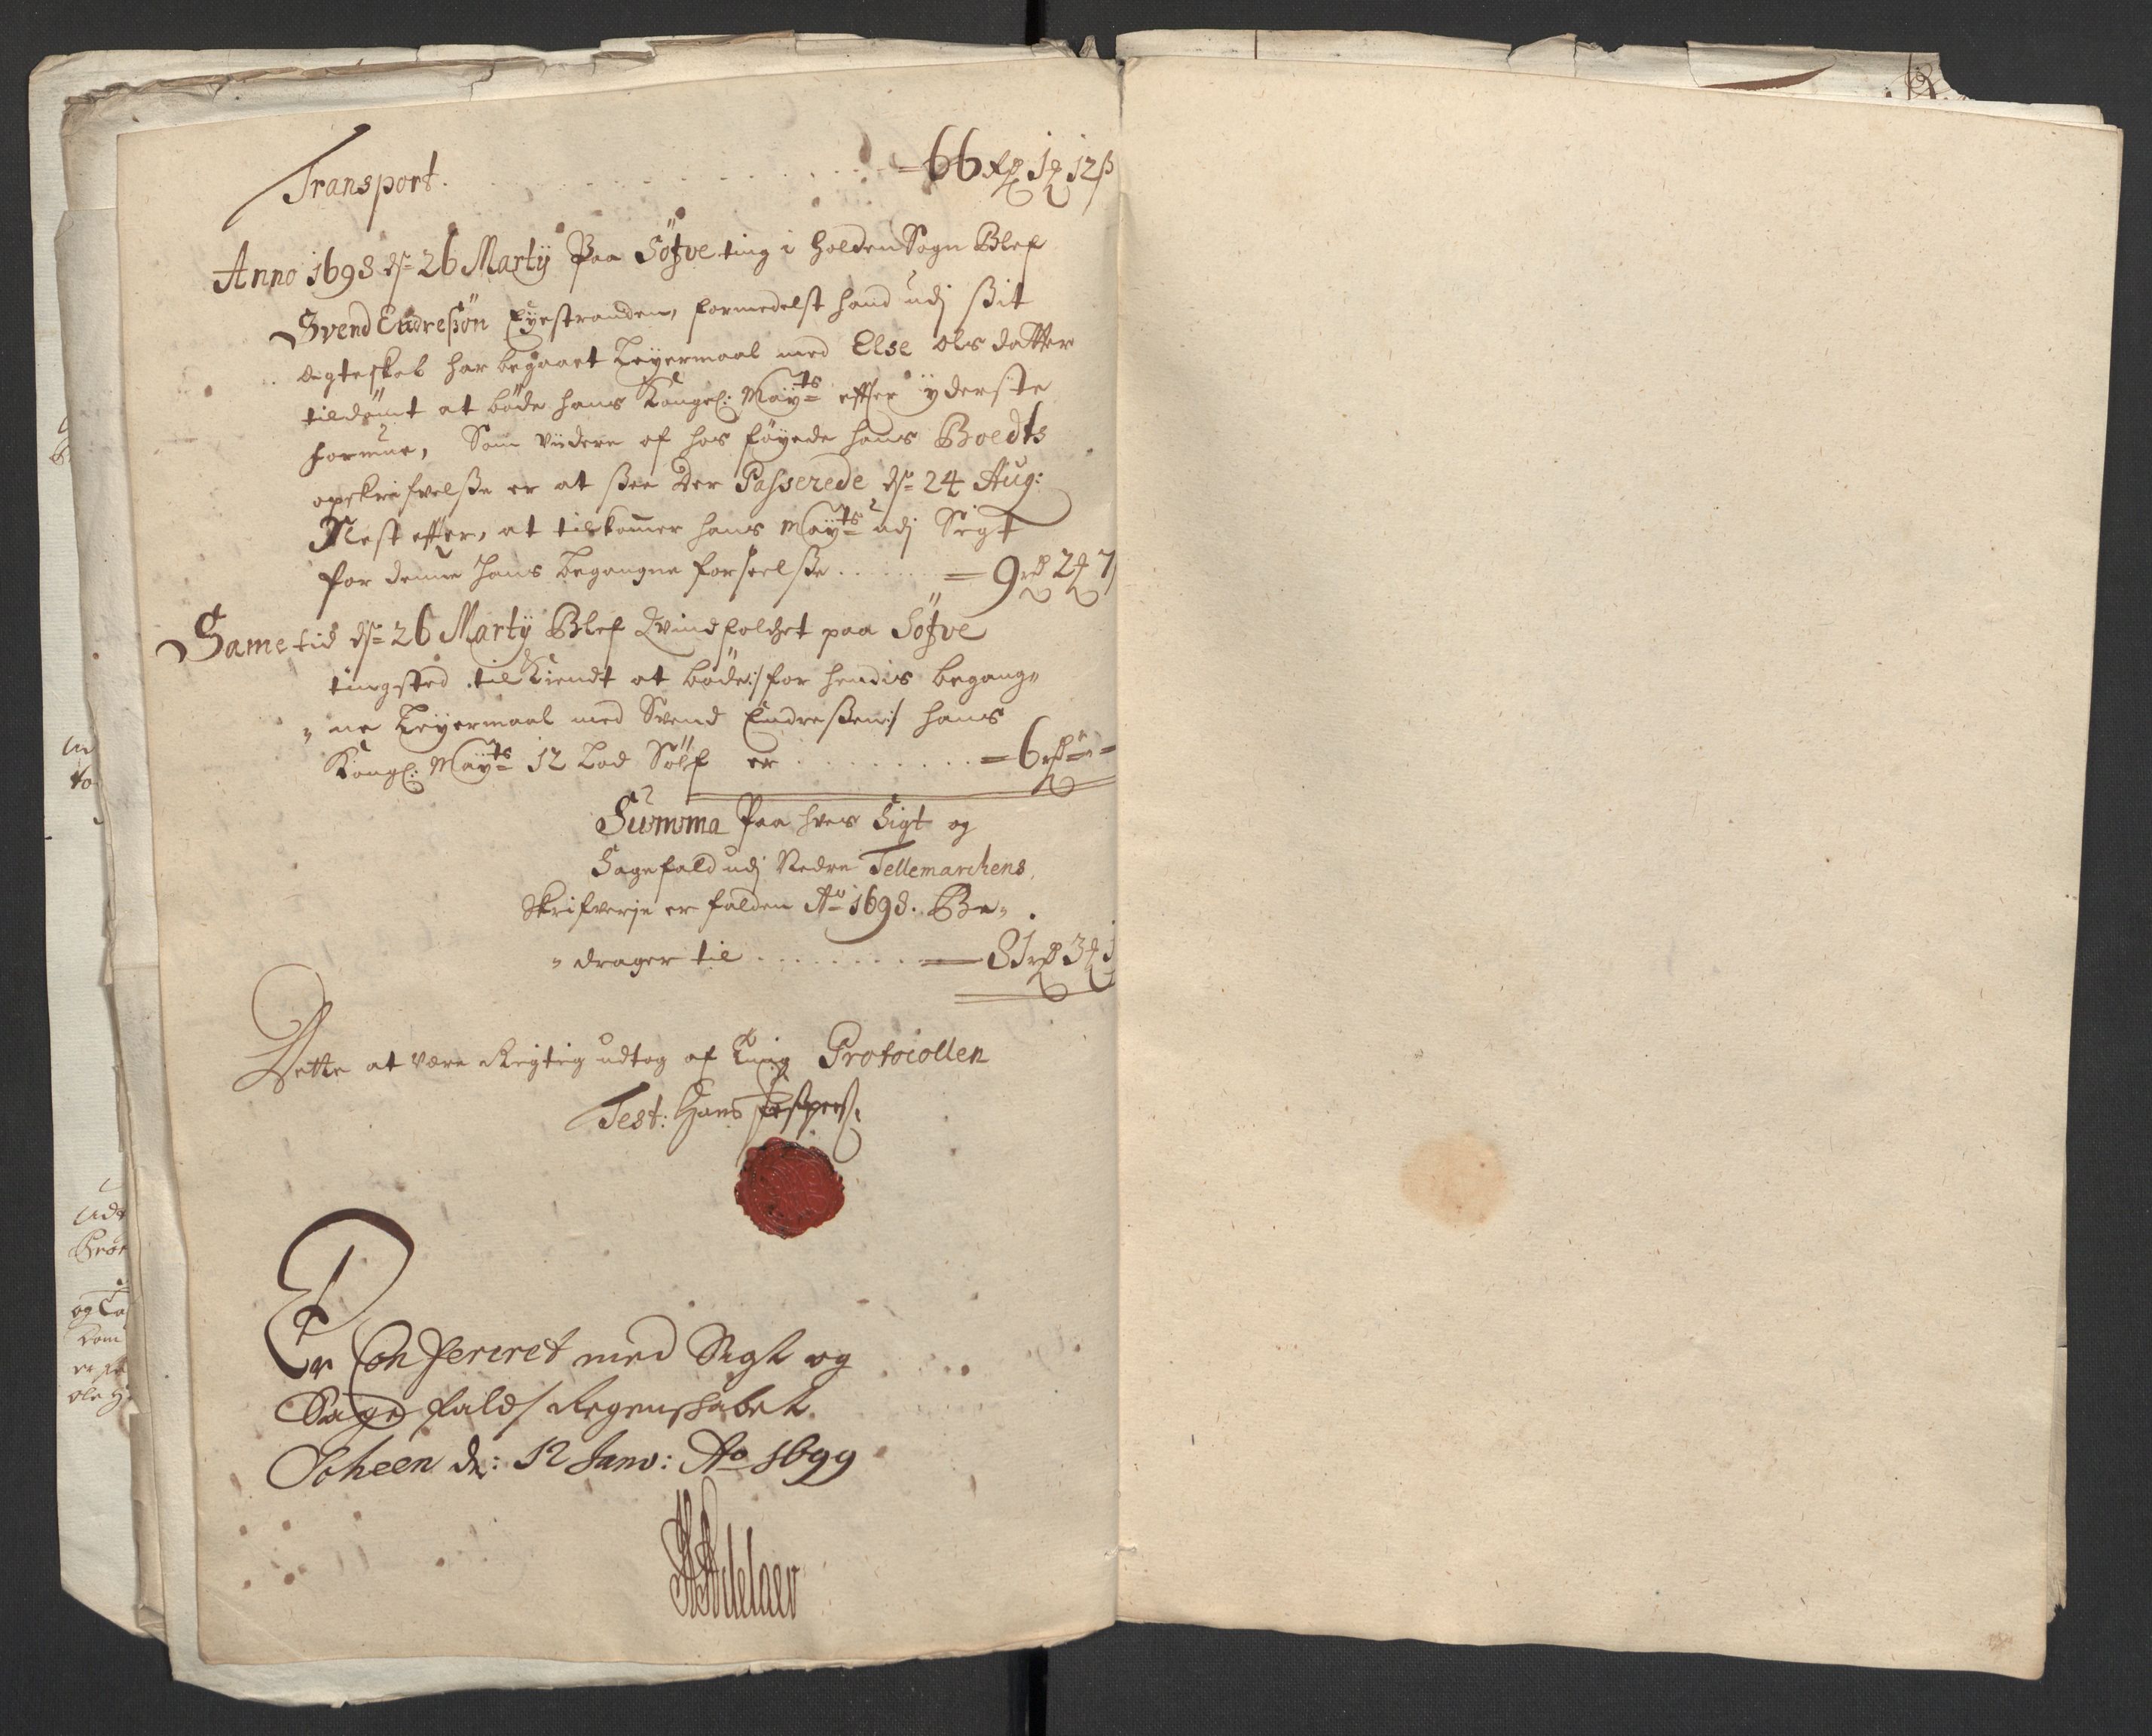 Transport. . . . . . . . . . . = 66 rd 1 ꝶ 12 ß
Anno 1698 ds= 26 Martÿ Paa Söfve ting i Holden Sogn Blef
Svend Endresön Eÿestranden, formedelst hand udj sit
ægteskab har begaaet Leÿermaal med Else Olsdatter
tildömt at böde hans Kongel: Maÿts= effter ÿderste
formue, Som viidere af hos föÿede hans Boedts
opskrifvelsse er at see der Passerede ds= 24 Aug:
Nest effter, at tilkomer hans Maÿts= udj Sigt
for denne hans begangne forseelsse . . . . . = 9 rd 2 ꝶ 7
Same tid ds= 26 Martÿ Blef Qvindfolchet paa Söfve
tingsted tilkiendt at böde :/ for hendis begang=
= ne Leÿermaal med Svend Endressen :/ hans
Kongl: Maÿts= 12 Lod Sölf er . . . . . . . . . = 6 rd " =
Summa Paa hves Sigt og
Sagefald udj Nedre Tellemarchens
Skrifverje er falden Ao 1698. Be=
= drager til . . . . . . . . = 81 rd 3 ꝶ 1
Dette at være Rigtig udtog af Ting Protocollen
Test: Hans Jespers:
Er Confereret med Sigt og
Sage falds Regenskabet
Scheen dn: 12 Janv: Ao 1699
Adelaer